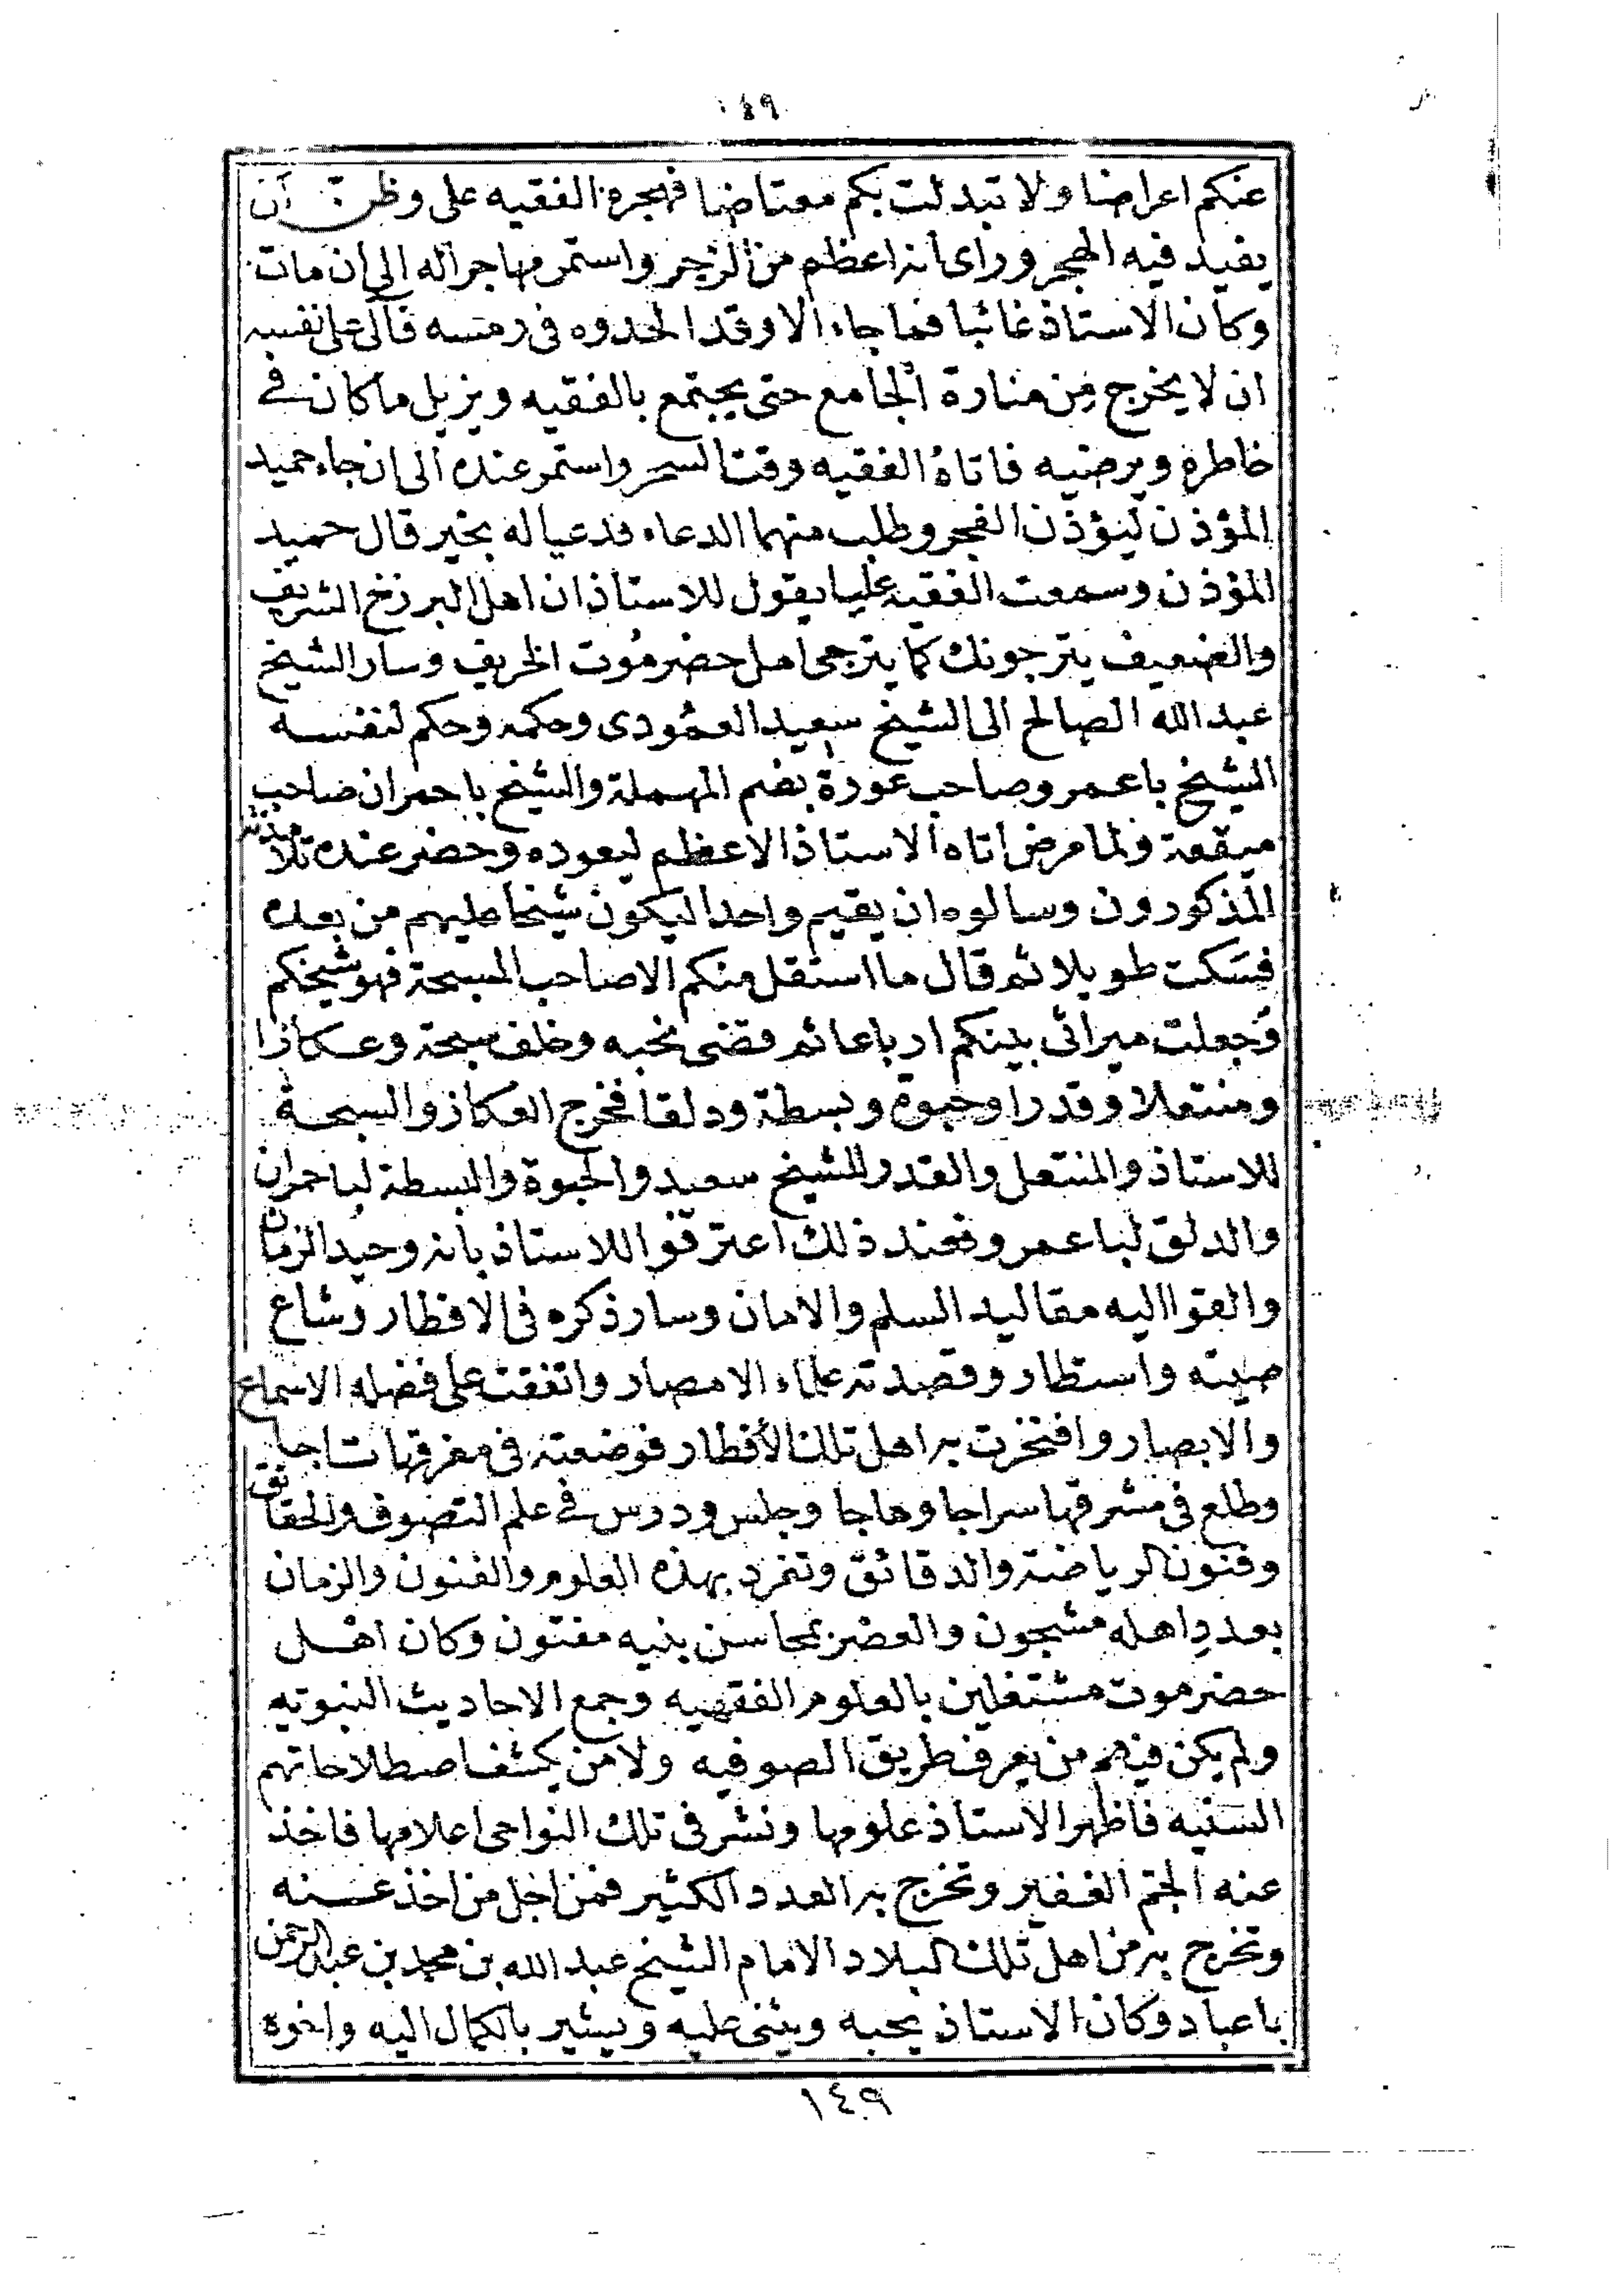 ١٤٩
عنكم اعراضا ولا تبدلت بكم معتاضا فهجره الفقيه على وظن أن
يفيد فيه الهجر وراى انه اعظم من الزجر واستمر مهاجرا له الى ان مات
وكان الاستاذ غائبا فما جاء الا وقد الحدوه فى رمسه فآلى على نفسه
ان لا يخرج من منارة الجامع حتى يجتمع بالفقيه ويزيل ما كان فى
خاطره ويرضيه فاتاه الفقيه وقت السحر واستمر عنده الى ان جاء حميد
المؤذن ليؤذن الفجر وطلب منهما الدعاء فدعيا له بخير قال حميد
المؤذن وسمعت الفقيه عليا يقول للاستاذ ان اهل البرزخ الشريف
والضعيف يترجونك كما يترجى اهل حضرموت الخريف وسار الشيخ
عبد الله الصالح الى الشيخ سعيد العمودى وحكمه وحكم لنفسه
الشيخ باعمر وصاحب عورة بضم المهملة والشيخ باحمران صاحب
ميفعة ولما مرض اتاه الاستاذ الاعظم ليعوده وحضر عنده تلامذته
المذكورون وسالوه ان يقيم واحدا ليكون شيخا عليهم من بعده
فسكت طويلا ثم قال ما استقل منكم الا صاحب المسبحة فهو شيخكم
وجعلت ميراثى بينكم ارباعا ثم قضى نحبه وخلف سبحة وعكازا
ومنتعلا وقدرا وحبوة وبسطة ودلقا فخرج العكاز والسبحة
للاستاذ والمنتعل والقدر للشيخ سعيد والحبوة والبسطة لباحمران
والدلق لباعمر وفعند ذلك اعترفوا للاستاذ بانه وحيد الزمان
والقوا اليه مقاليد السلم والامان وسار ذكره فى الاقطار وشاع
صيته واستطار وقصدته علماء الامصار واتفقت على فضله الاسماع
والابصار وافتخرت به اهل تلك الأقطار فوضعته فى مفرقها تاجا
وطلع فى مشرقها سراجا وهاجا وجلس ودرس فى علم التصوف والحقائق
وفنون الرياضة والدقائق وتفرد بهذه العلوم والفنون والزمان
بعدد اهله مشحون والعصر بمحاسن بنيه مفتون وكان اهل
حضرموت مشتغلين بالعلوم الفقهيه وجمع الاحاديث النبوتيه
ولم يكن فيهم من يعرف طريق الصوفيه ولا من يكشف اصطلاحاتهم
السنيه فاظهر الاستاذ علومها ونشر فى تلك النواحى اعلامها فاخذ
عنه الجم الغفير وتخرج به العدد الكثير فمن اجل من اخذ عنه
وتخرج به من اهل تلك البلاد الامام الشيخ عبد الله بن محمد بن عبد الرحمن
باعباد وكان الاستاذ يحبه ويثنى عليه ويشير بالكمال اليه واخوه
١٤٩